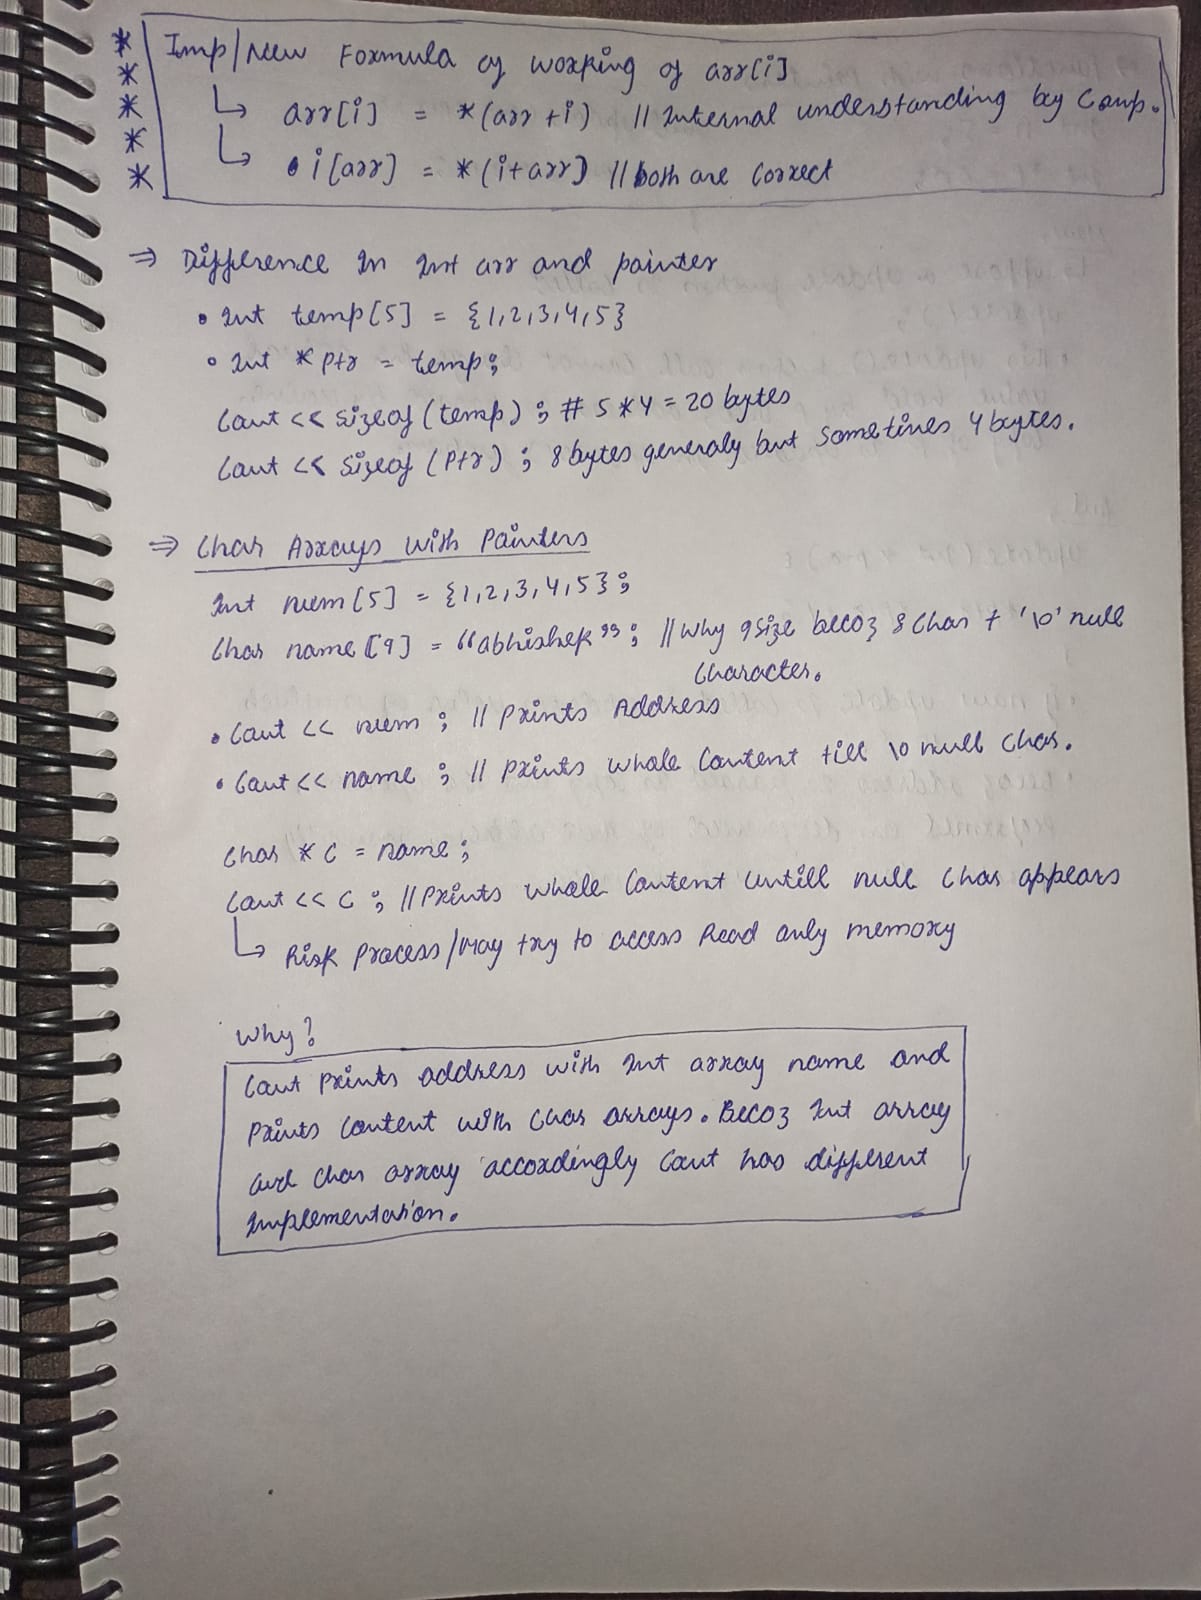 Imp/New Formula of working of arr[i]
↳ arr[i] = *(arr + i) // Internal understanding by Comp.
↳ • i[arr] = *(i+arr) // both are correct
⇒ Difference In Int arr and pointer
• Int temp[5] = {1,2,3,4,5}
• Int *ptr = temp;
Cout << sizeof(temp); # 5*4 = 20 bytes
Cout << sizeof(ptr); 8 bytes generaly but sometimes 4 bytes.
⇒ Char Arrays with Pointers
Int num[5] = {1,2,3,4,5};
Char name[9] = "abhishek"; // Why 9 size becoz 8 char + '\0' null
Character.
• Cout << num; // Prints Address
• Cout << name; // prints whole Content till \0 null char.
Char *c = name;
Cout << c; // Prints whole Content untill null char appears
↳ Risk Process/May try to access Read only memory
Why?
Cout prints address with Int array name and
prints content with char arrays. Becoz Int array
and char array accordingly Cout has different
Implementation.